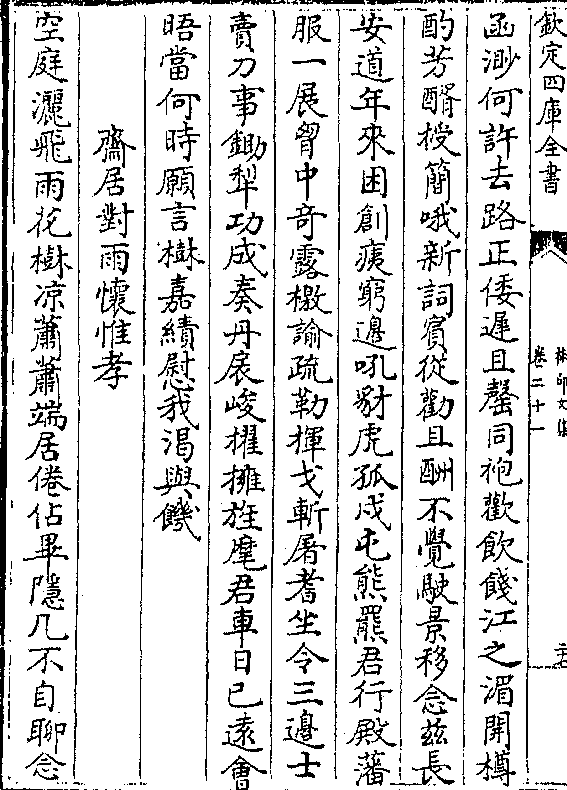 欽定四庫全書
卷二十一
函渺何許去路正倭遲且罄同袍歡飲餞江之湄開樽
酌芳醑授簡哦新詞賓從勸且酬不覺駛景移念茲長
安道年來困創痍窮邊吼豺虎孤戍屯熊羆君行殿藩
服一展胷中奇露檄諭疏勒揮戈斬屠耆坐令三邊士
賣刀事鋤犁功成奏丹扆峻擢擁旌麾君車日已遠會
晤當何時願言樹嘉績慰我渴與饑
齋居對雨懷惟孝
空庭灑飛雨花樹凉蕭蕭端居倦佔畢隱几不自聊念